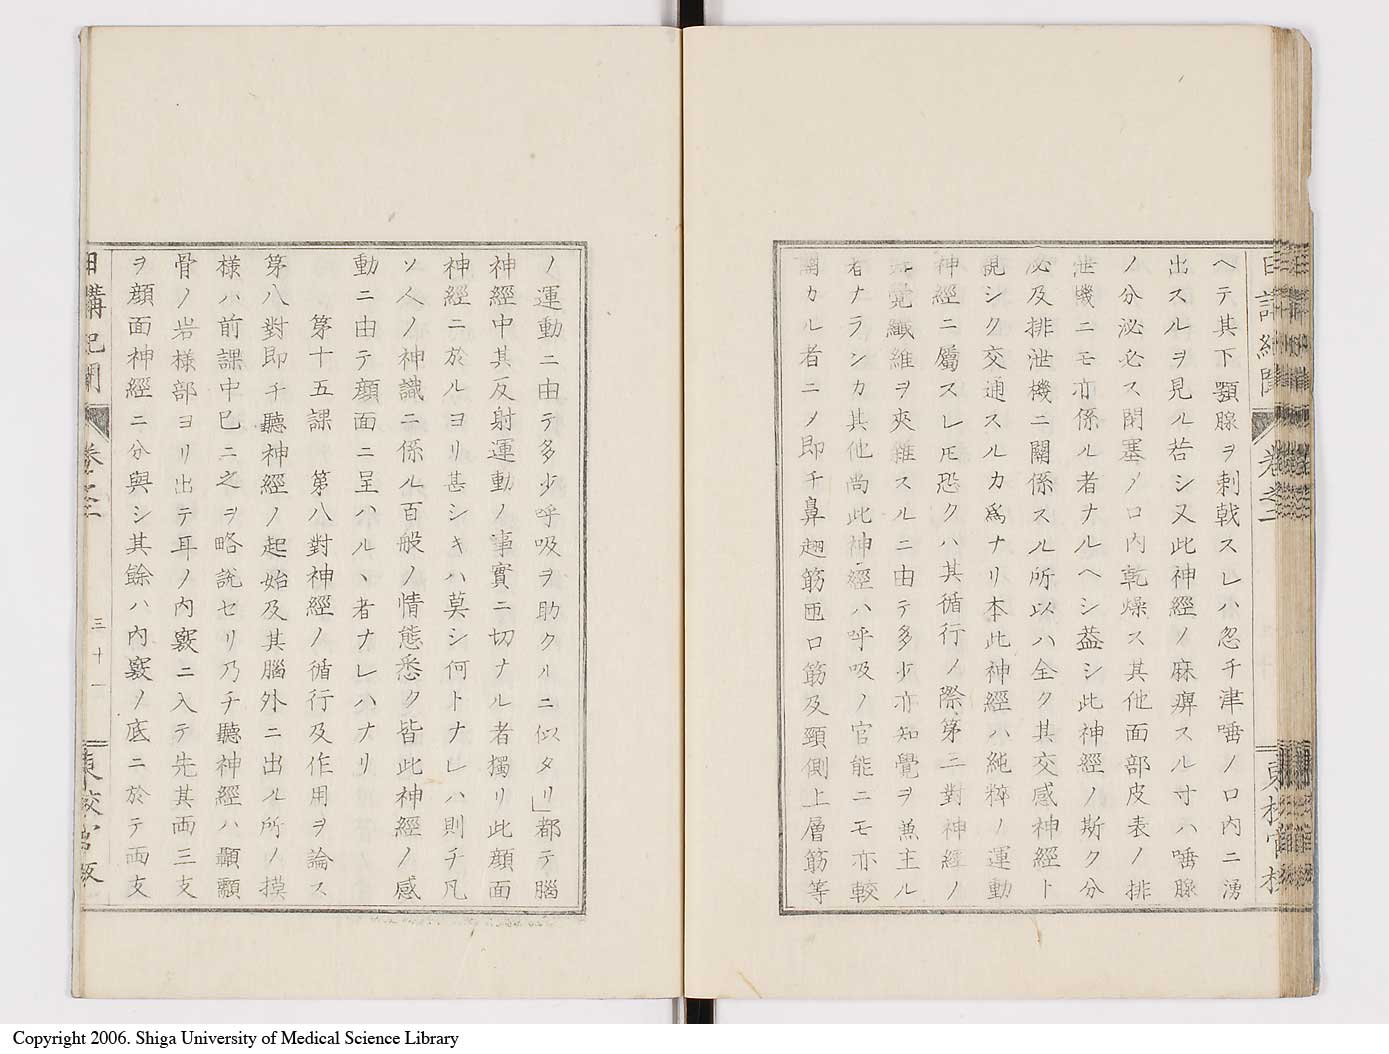 ヘテ其下顎腺ヲ刺戟スレハ忽チ津唾ノ口内ニ湧
出スルヲ見ル若シ又此神經ノ麻痹スル寸ハ唾腺
ノ分泌必ス閉塞ノ口内乾燥ス其他面部皮表ノ排
泄機ニモ亦係ル者ナルヘシ葢シ此神經ノ斯ク分
泌及排泄機ニ關係スル所以ハ全ク其交感神經ト
親シク交通スルカ爲ナリ本此神經ハ純粹ノ運動
神經ニ屬スレ𪜈恐クハ其循行ノ際第三對神經ノ
知覺纖維ヲ夾雜スルニ由テ多少亦知覺ヲ兼主ル
者ナランカ其他尚此神經ハ呼吸ノ官能ニモ亦較
關カル者ニノ即チ鼻翅筋匝口筋及頸側上層筋等
卷之二
ノ運動ニ由テ多少呼吸ヲ助クルニ似タリ」都テ腦
神經中其反射運動ノ事實ニ切ナル者獨リ此顔面
神經ニ於ルヨリ甚シキハ莫シ何トナレハ則チ凡
ソ人ノ神識ニ係ル百般ノ情態悉ク皆此神經ノ感
動ニ由テ顔面ニ呈ハルヽ者ナレハナリ
第十五課　第八對神經ノ循行及作用ヲ論ス
第八對即チ聽神經ノ起始及其腦外ニ出ル所ノ摸
樣ハ前課中已ニ之ヲ略説セリ乃チ聽神經ハ顳顬
骨ノ岩樣部ヨリ出テ耳ノ内竅ニ入テ先其両三支
ヲ顔面神經ニ分與シ其餘ハ内竅ノ底ニ於テ両支
日講記聞
卷之二
三十一
東校官版
Copyright 2006. Shiga University of Medical Science Library